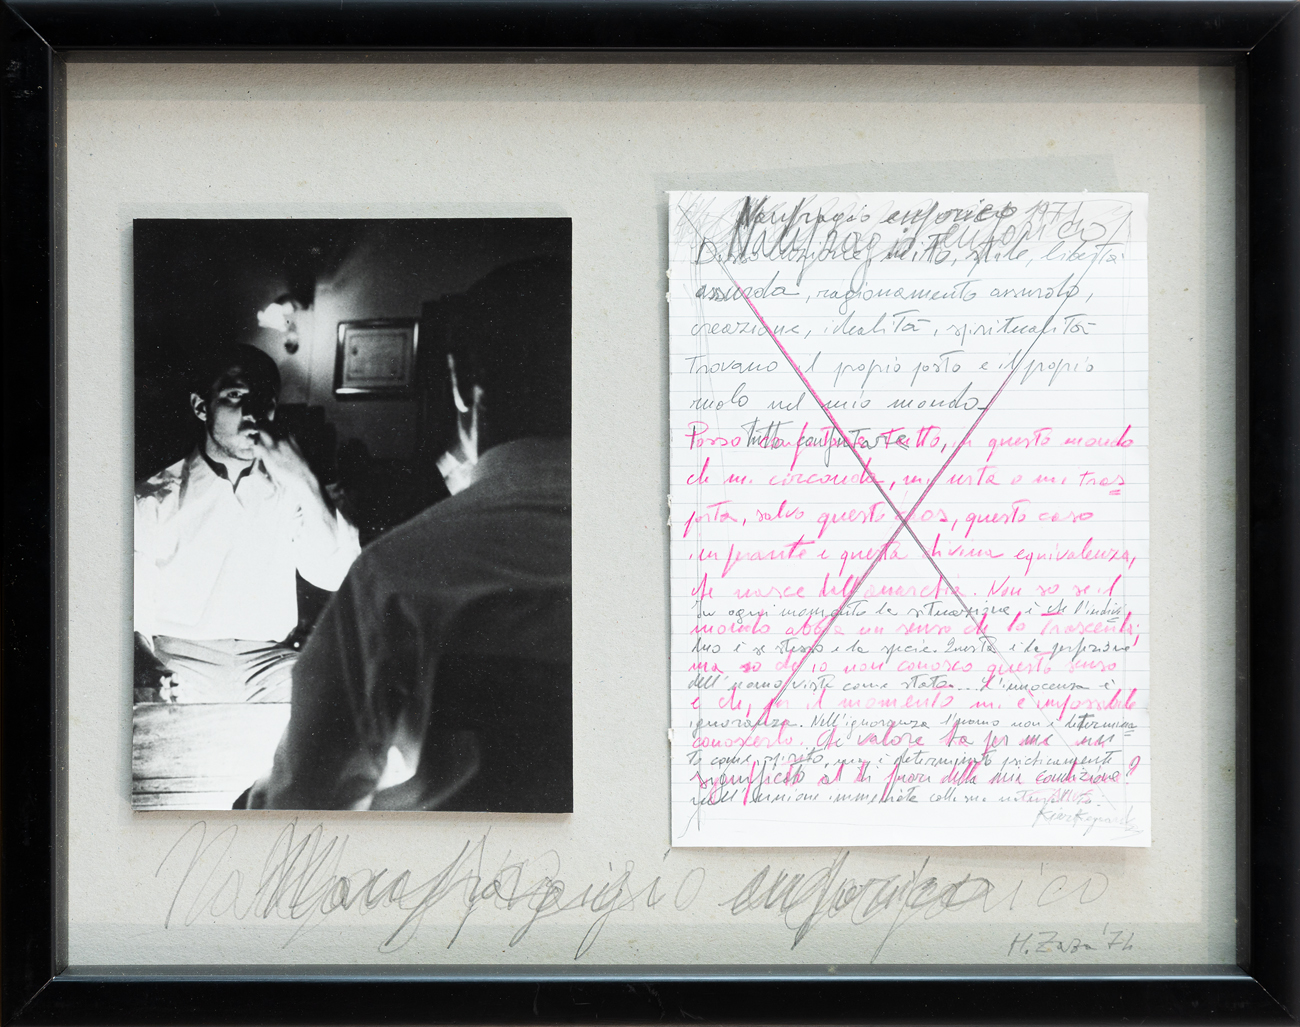 Naufragio euforico 1974
Naufragio euforico
Dissociazione, mito, stile, libertà
assurda, ragionamento assurdo,
creazione, idealità, spiritualità
trovano il proprio posto e il proprio
ruolo nel mio mondo
Posso tutto confutare tutto, in questo mondo
che mi circonda, mi urta o mi tras
porta, salvo questo caos, questo caso
imperante e questa divina equivalenza,
che nasce dall'anarchia. Non so se il
In ogni momento la situazione è che l'indivi
mondo abbia un senso che lo trascenda;
duo è se stesso e la specie. Questa è la perfezione
ma so che io non conosco questo senso
dell'uomo vista come stato... L'innocenza è
e che, per il momento mi è impossibile
ignoranza. Nell'ignoranza l'uomo non è determina
conoscerlo. Che valore ha per me un
to come spirito, ma è determinato psichicamente
significato al di fuori della mia condizione?
nell'unione immediata colla sua naturalità.
Camus
Kierkegaard
Naufragio euforico
M. Zaza '74